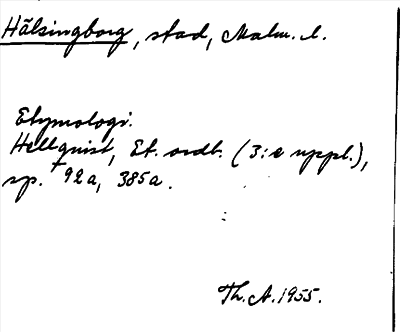 Hälsingborg, stad, Malm. l.
Etymologi.
Hellquist, Et. ordb. (3:e uppl.),
sp. 92a, 385a.
Th. A. 1955.